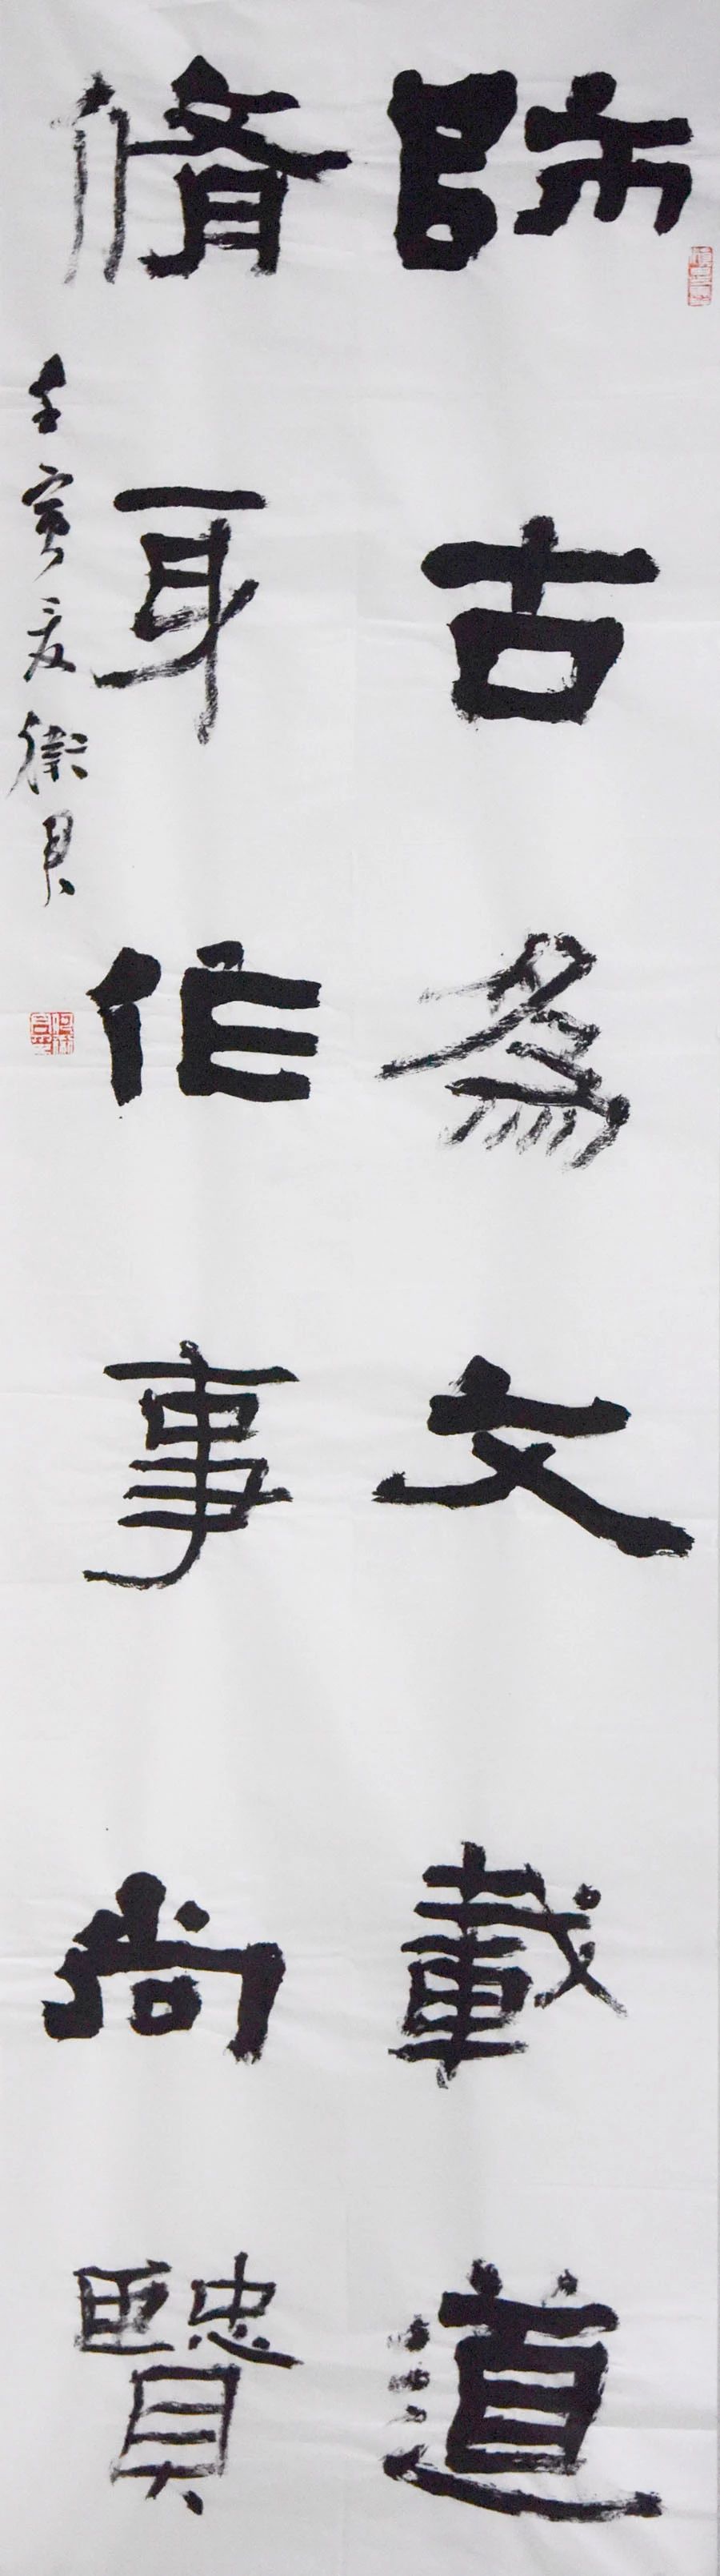 師古為文載道
脩身作事尚贒
壬寅夏